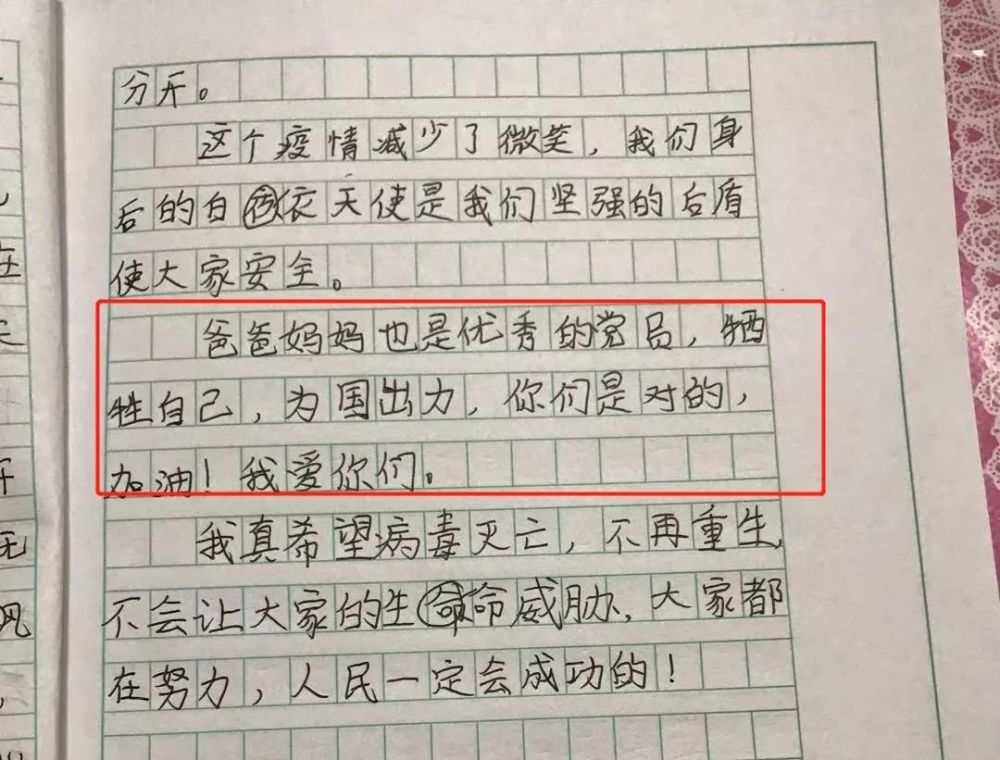 分开。
这个疫情减少了微笑，我们身
后的白依天使是我们坚强的后盾
使大家安全。
爸爸妈妈也是优秀的党员，牺
牲自己，为国出力，你们是对的，
加油！我爱你们。
我真希望病毒灭亡，不再重生，
不会让大家的生命威胁，大家都
在努力，人民一定会成功的！